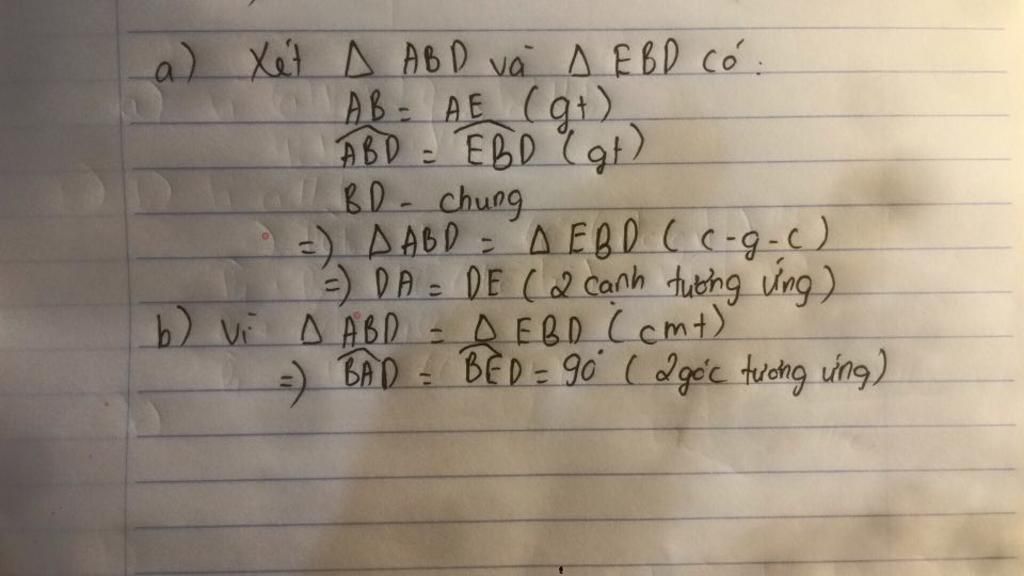 a) Xét Δ ABD và Δ EBD có:
AB = AE (gt)
ABD = EBD (gt)
BD - chung
=) Δ ABD = Δ EBD (c-g-c)
=) DA = DE (2 cạnh tương ứng)
b) Vì Δ ABD = Δ EBD (cmt)
=) BAD = BED = 90° (2 góc tương ứng)